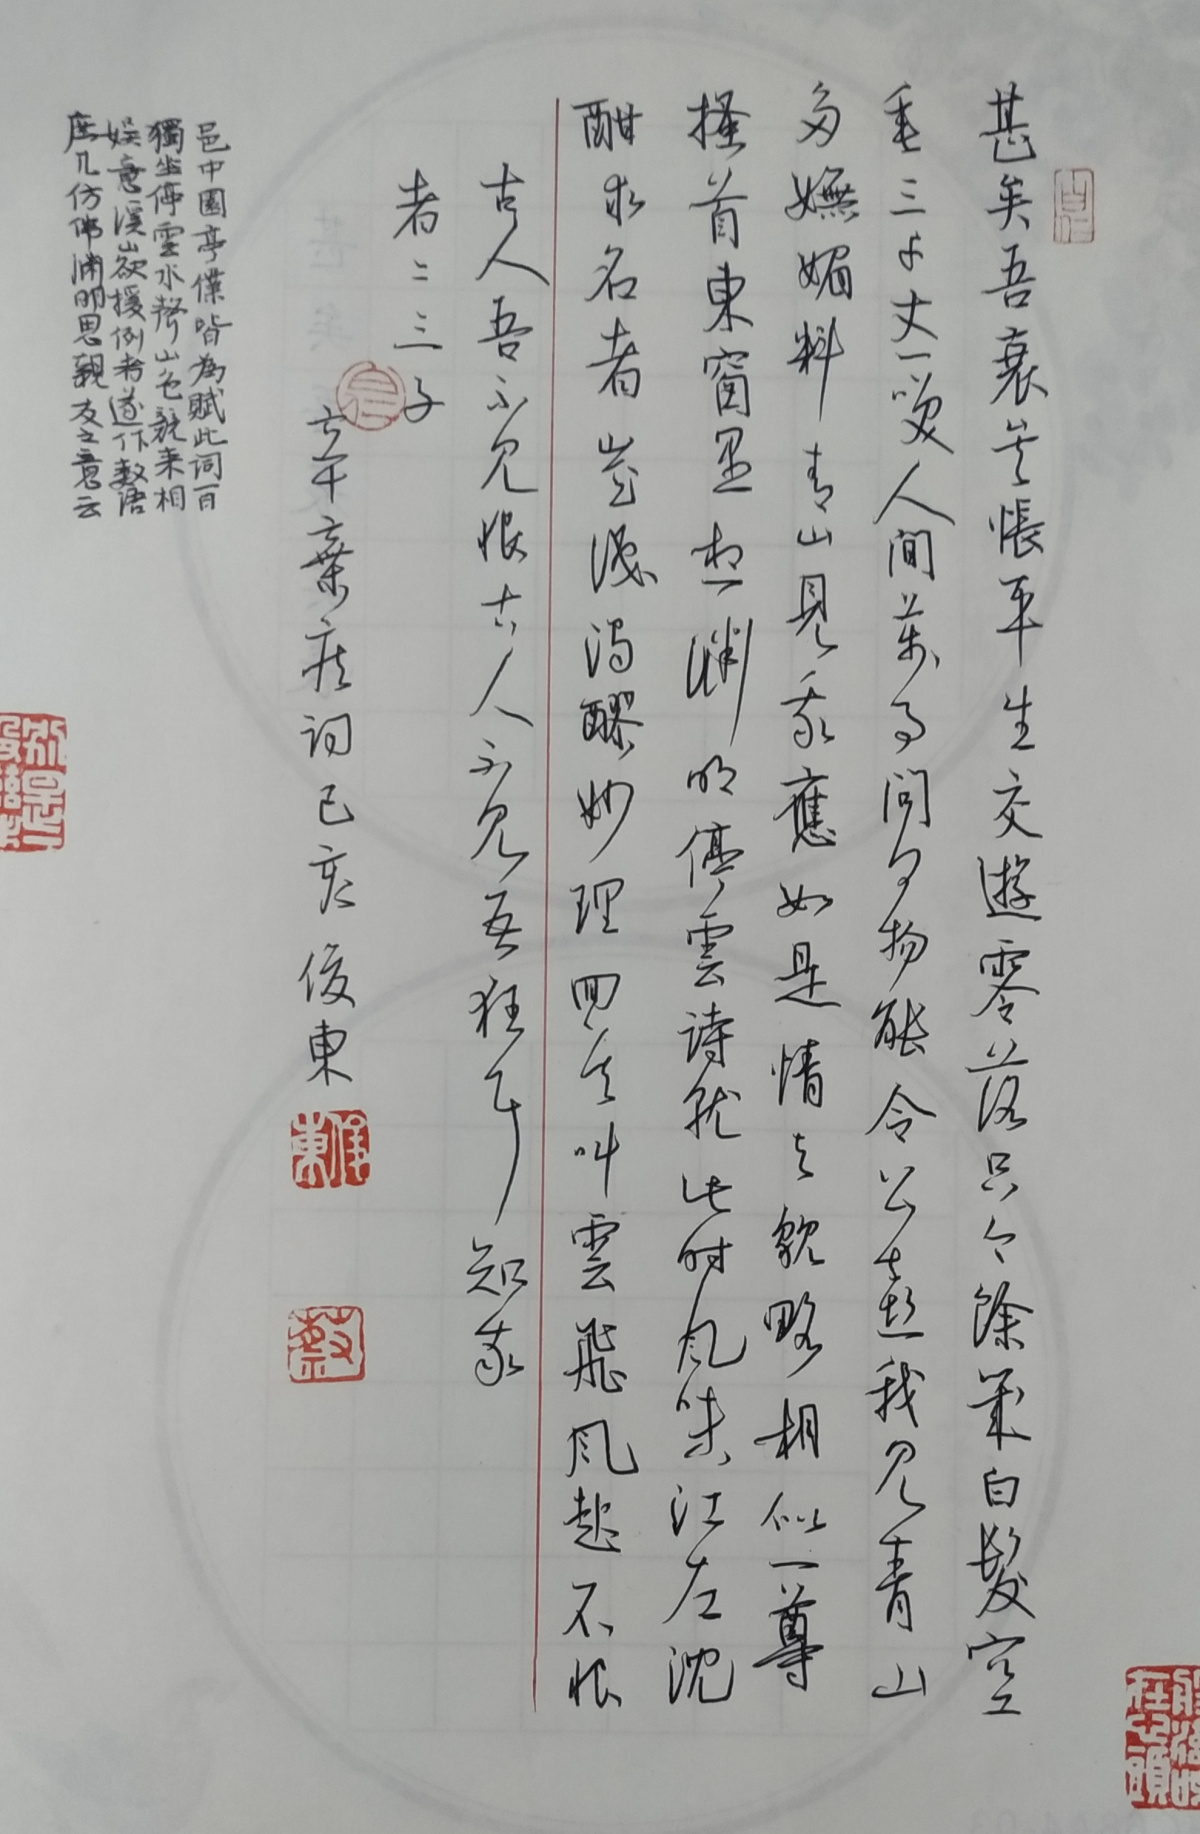 甚矣吾衰矣悵平生交遊零落只今餘幾白髮空
垂三千丈一笑人間萬事問何物能令公喜我見青山
多嫵媚料青山見我應如是情與貌略相似一尊
搔首東窗裏想淵明停雲詩就此時風味江左沈
酣求名者豈識濁醪妙理回首叫雲飛風起不恨
古人吾不見恨古人不見吾狂耳知我
者二三子
辛棄疾詞己亥俊東
邑中園亭僕皆為賦此詞一日
獨坐停雲水聲山色競來相
娛意溪山欲援例者遂作數語
庶几仿佛淵明思親友之意云
俊東
蔡